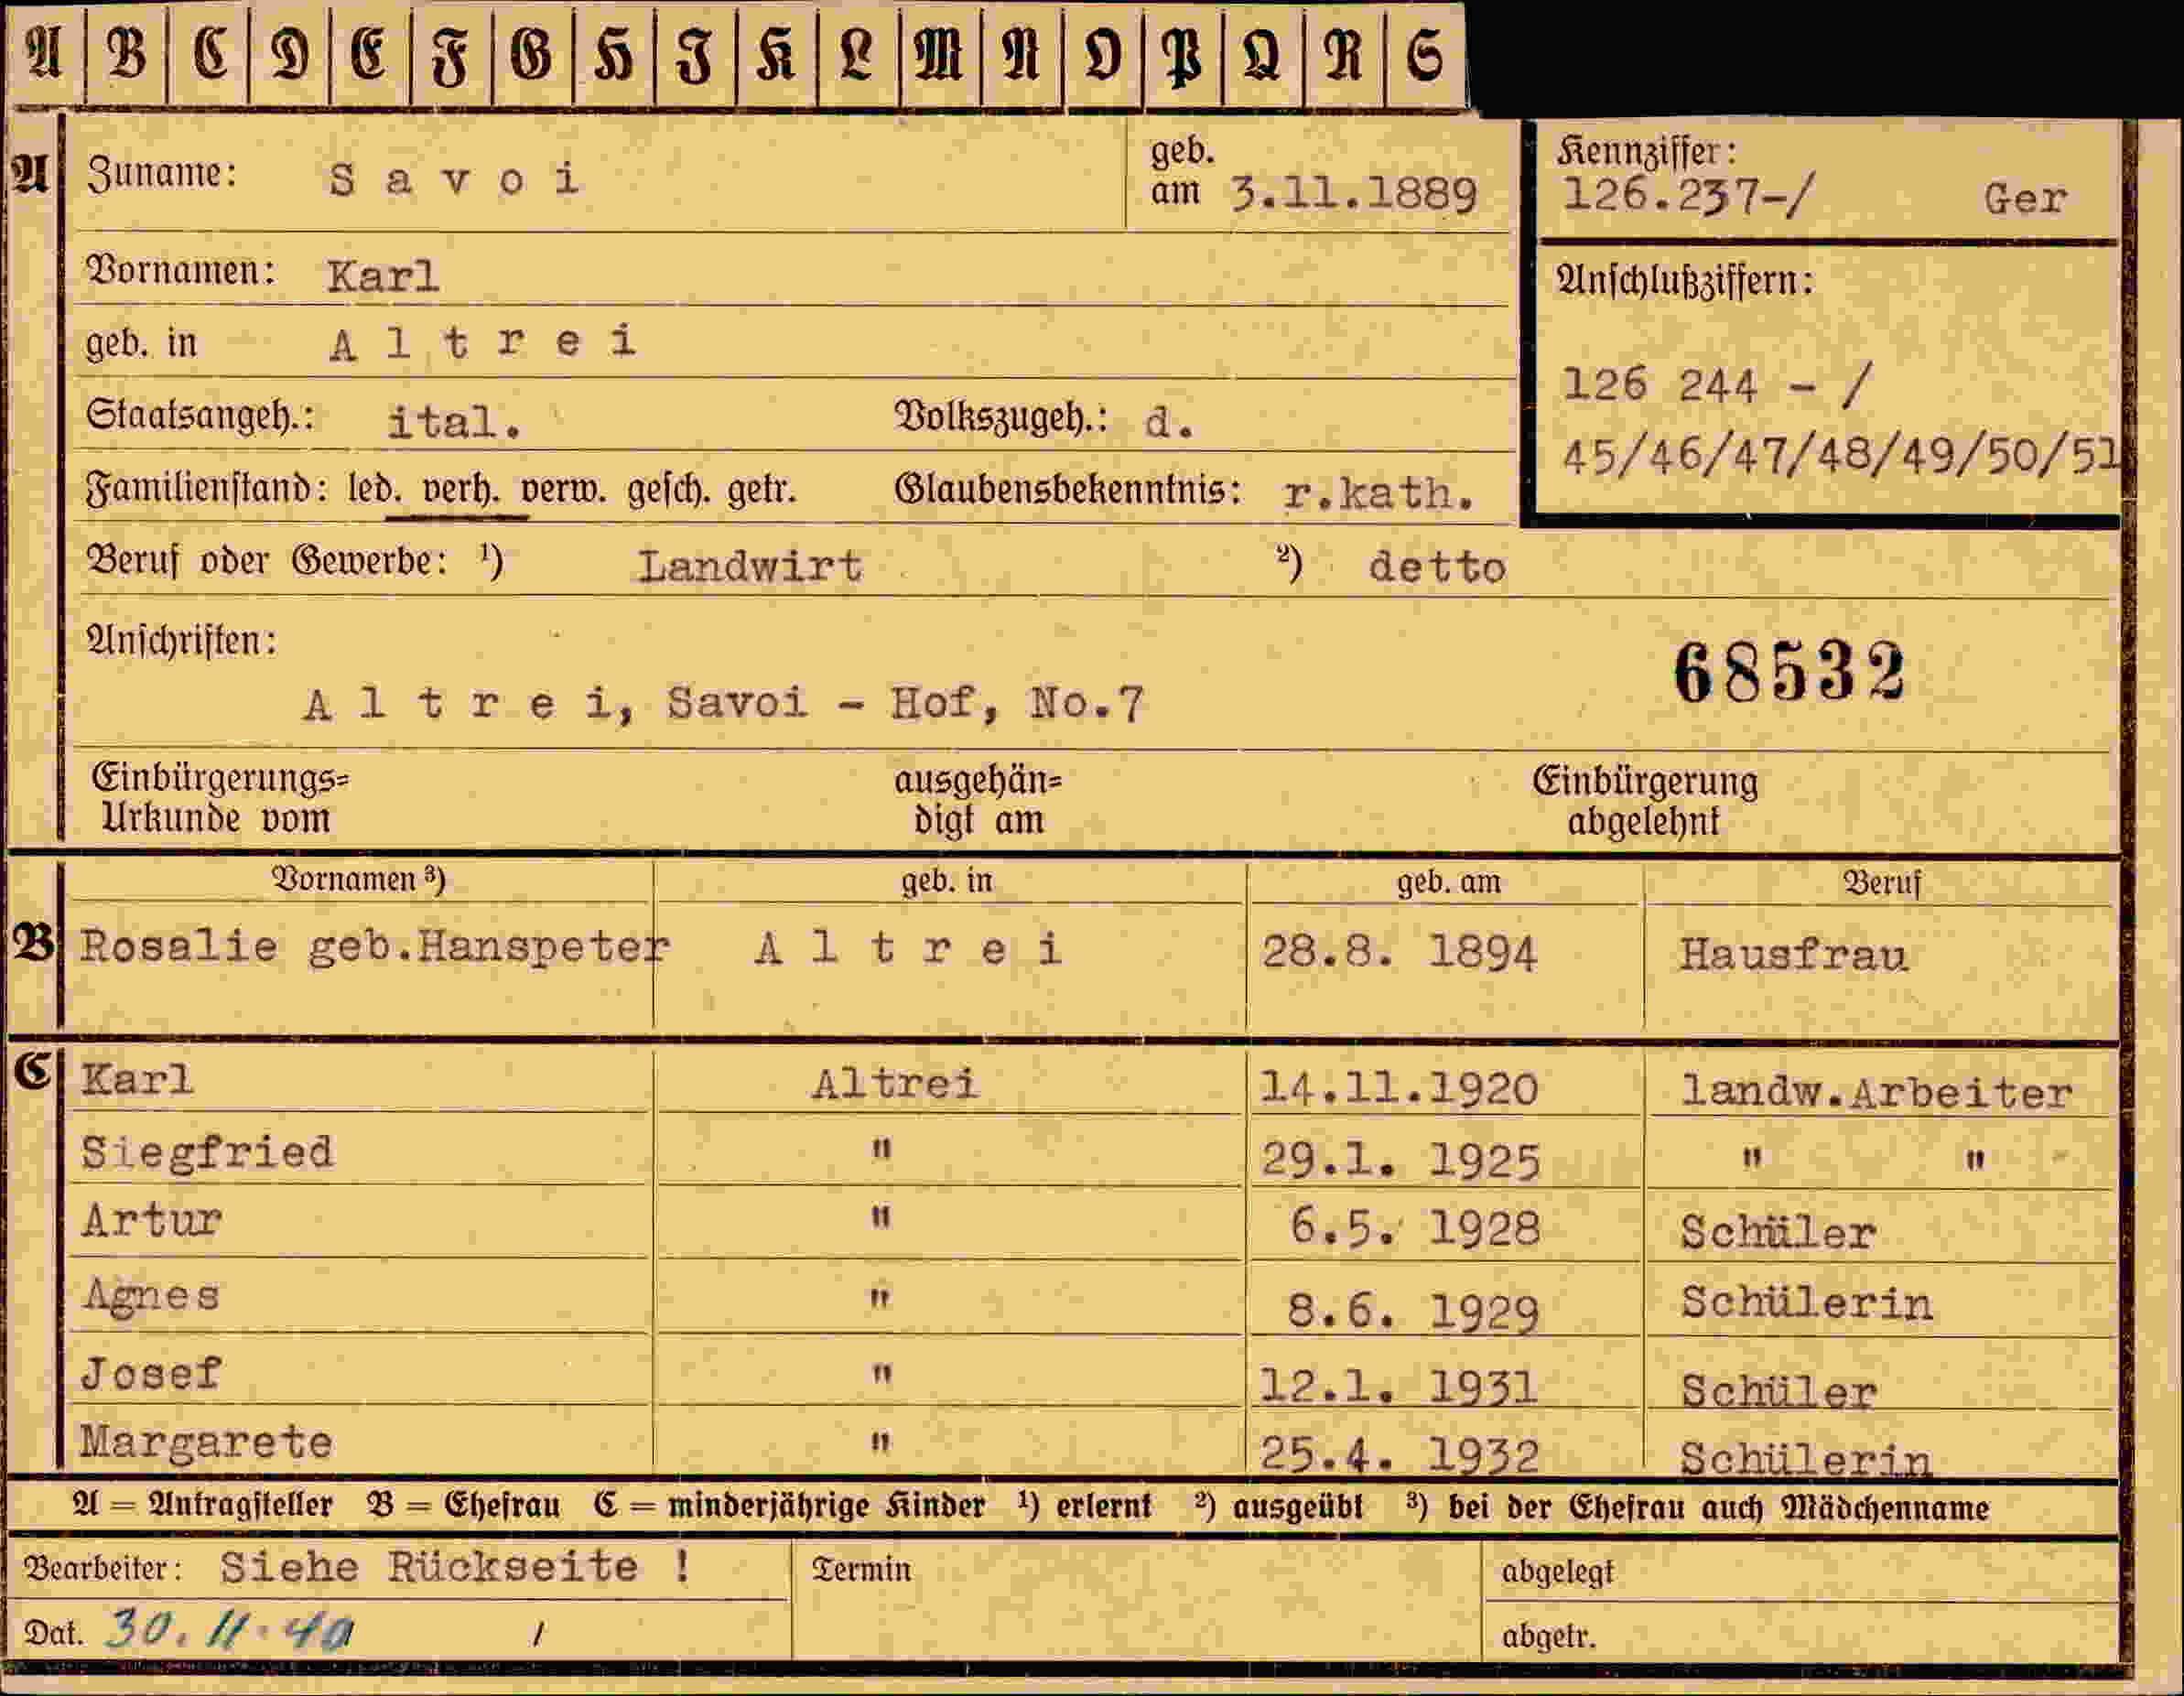 A B C D E F G H I K L M N O P Q R S
A Zuname: S a v o i geb. am 3.11.1889
Kennziffer:
126.237-/ Ger
Vornamen: Karl
Anschlußziffern:
geb. in A l t r e i
126 244 - /
Staatsangeh.: ital. Volkszugeh.: d.
45/46/47/48/49/50/51
Familienstand: led. verh. verw. gesch. getr. Glaubensbekenntnis: r.kath.
Beruf oder Gewerbe: ¹) Landwirt ²) detto
Anschriften:
68532
A l t r e i, Savoi - Hof, No.7
Einbürgerungs= ausgehän= Einbürgerung
Urkunde vom digt am abgelehnt
Vornamen ³) geb. in geb. am Beruf
B Rosalie geb.Hanspeter A l t r e i 28.8. 1894 Hausfrau
C Karl Altrei 14.11.1920 landw.Arbeiter
Siegfried " 29.1. 1925 " "
Artur " 6.5. 1928 Schüler
Agnes " 8.6. 1929 Schülerin
Josef " 12.1. 1931 Schüler
Margarete " 25.4. 1932 Schülerin
A = Antragsteller B = Ehefrau C = minderjährige Kinder ¹) erlernt ²) ausgeübt ³) bei der Ehefrau auch Mädchenname
Bearbeiter: Siehe Rückseite ! Termin abgelegt
Dat. 30.11.40 / abgetr.